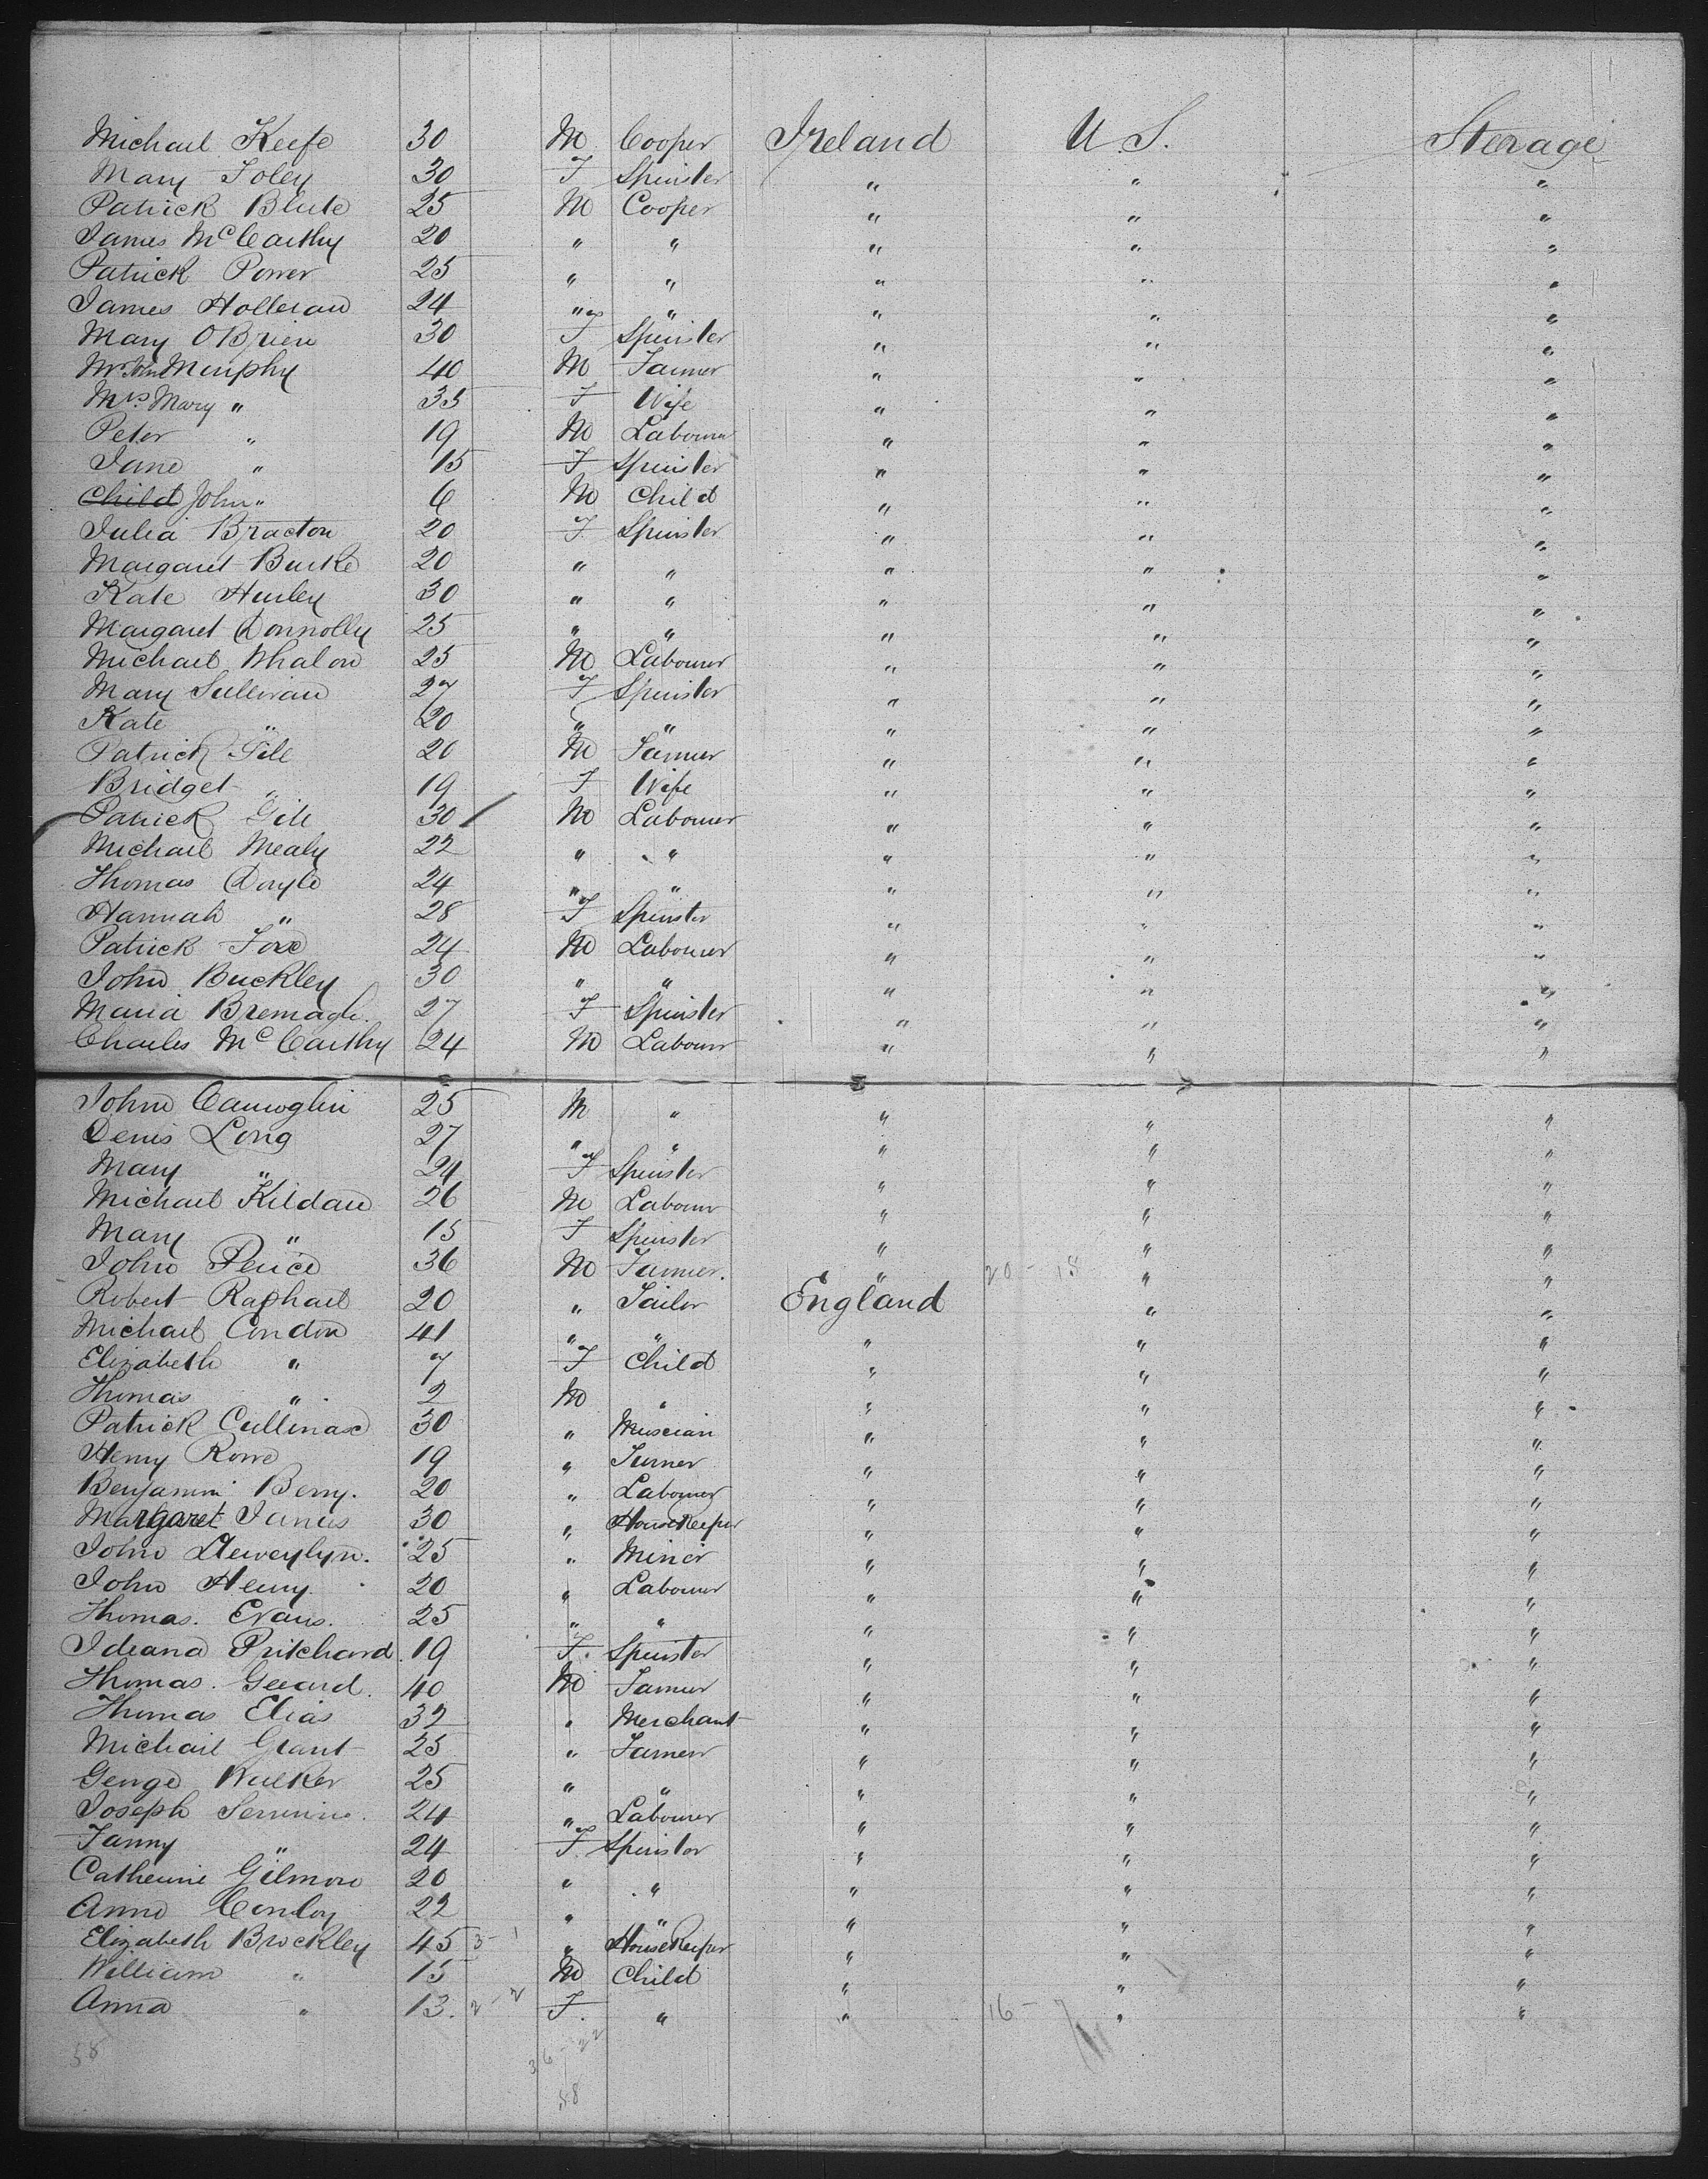 Michael Keefe 30 M Cooper Ireland U.S. Sterage
Mary Foley 30 F Spinster " " "
Patrick Blute 25 M Cooper " " "
James McCarthy 20 " " " " "
Patrick Power 25 " " " " "
James Holleran 24 " " " " "
Mary OBrien 30 F Spinster " " "
Mr John Murphy 40 M Farmer " " "
Mrs Mary " 35 F Wife " " "
Peter " 19 M Labourer " " "
Jane " 15 F Spinster " " "
Child John " 6 M Child " " "
Julia Bracton 20 F Spinster " " "
Margaret Burke 20 " " " " "
Kate Hurley 30 " " " " "
Margaret Donnolly 25 " " " " "
Michael Whalon 25 M Labourer " " "
Mary Sullivan 27 F Spinster " " "
Kate " 20 " " " " "
Patrick Gill 20 M Farmer " " "
Bridget " 19 F Wife " " "
Patrick Gill 30 M Labourer " " "
Michael Mealy 22 " " " " "
Thomas Doyle 24 " " " " "
Hannah " 28 F Spinster " " "
Patrick Fox 24 M Labourer " " "
John Buckley 30 " " " " "
Maria Bremagh. 27 F Spinster " " "
Charles McCarthy 24 M Labourer " " "
John 25 M " " " "
Denis Long 27 " " " " "
Mary " 24 F Spinster " " "
Michael Kildau 26 M Labourer " " "
Mary " 15 F Spinster " " "
John Peice 36 M Farmer. " 20 - 18 " "
Robert Raphael 20 " Tailor England " "
Michael Condon 41 " " " " "
Elizabeth " 7 F Child " " "
Thomas " 2 M " " " "
Patrick Cullinae 30 " Muscian " " "
Henry Rowe 19 " Turner " " "
Benjamin Berry. 20 " Labourer " " "
Margaret James 30 " HouseKeeper " " "
John Lleweylyn. 25 " Miner " " "
John Henry. 20 " Labourer " " "
Thomas. Evans. 25 " " " " "
Ideana Pritchard. 19 F. Spinster " " "
Thomas. 40 M Farmer " " "
Thomas Elias 32 " Merchant " " "
Michail Grant 25 " Farmer " " "
George Walker 25 " " " " "
Joseph 24 " Labourer " " "
Fanny " 24 F. Spinster " " "
Catherine Gilmore 20 " " " " "
Anne Conloy 22 " " " " "
Elizabeth Brockley 45 3 - 1 " HouseKeeper " " "
William " 15 M Child " " "
Anna " 13. 2 - 2 F. " " 16 - " "
58 36 - 22
58